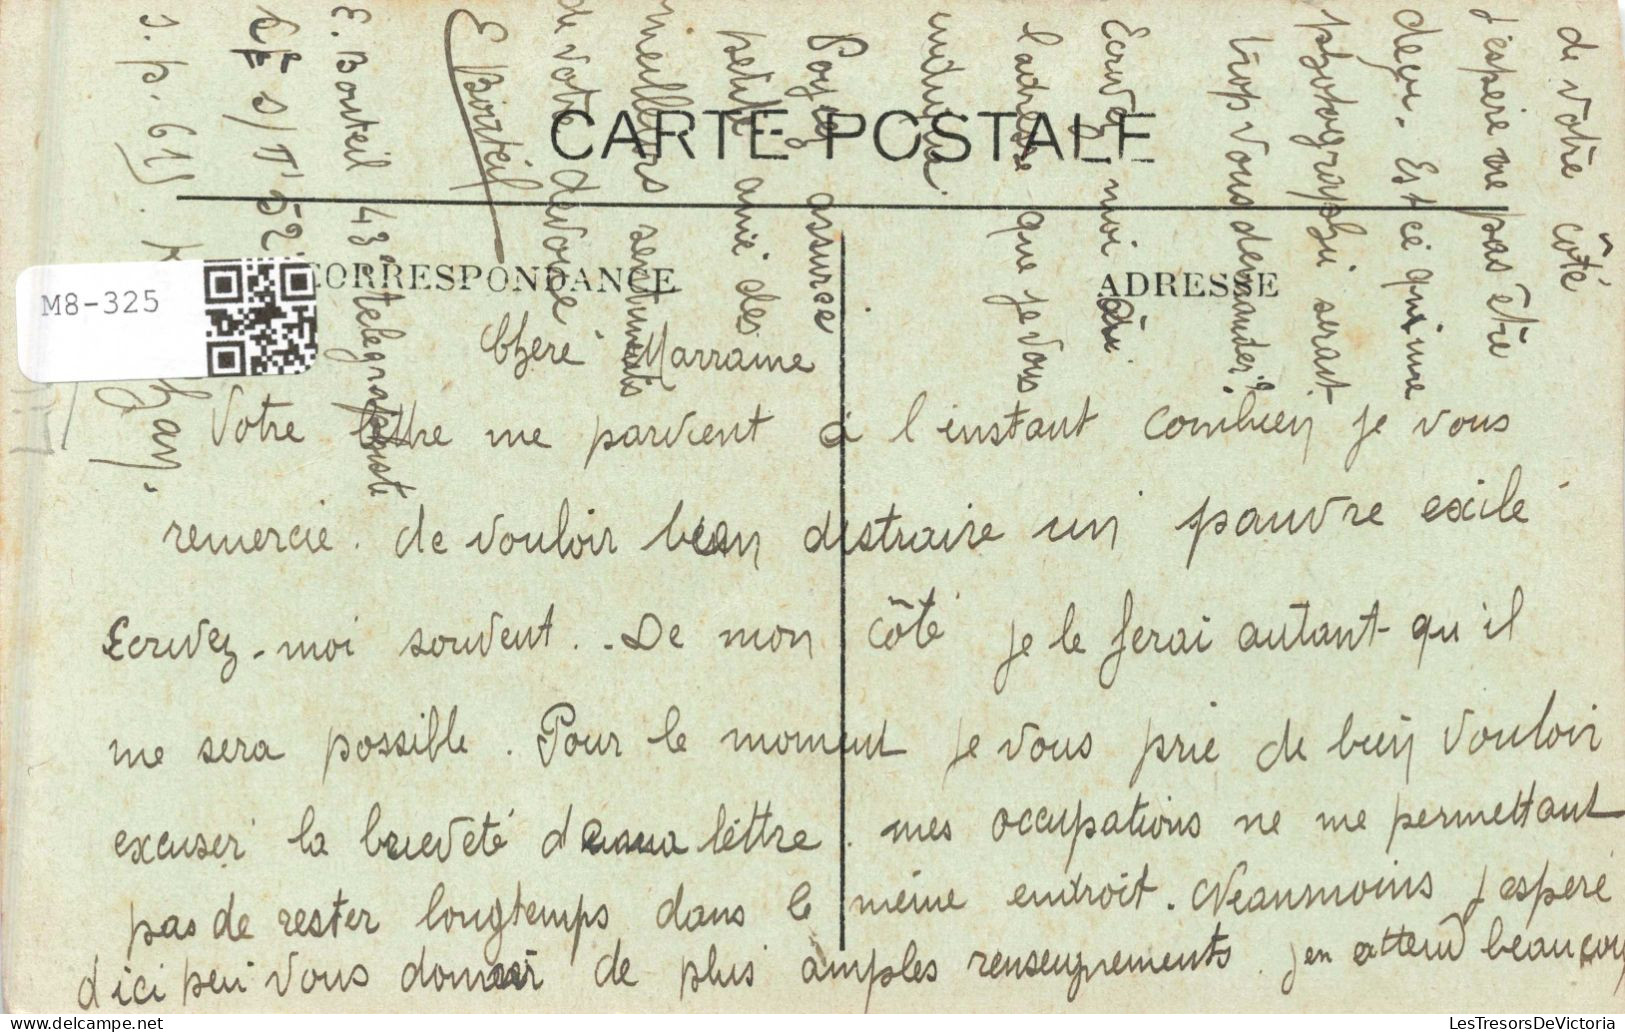 CARTE POSTALE
CORRESPONDANCE
ADRESSE
M8-325
Chere Marraine
Votre lettre me parvient à l'instant combien je vous
remercie. de vouloir bien distraire un pauvre exilé
Ecrivez-moi souvent.. De mon côté je le ferai autant qu'il
me sera possible. Pour le moment je vous prie de bien vouloir
excuser la brieveté de ma lettre. mes occupations ne me permettant
pas de rester longtemps dans le même endroit. Neanmoins j'espere
d'ici peu vous donner de plus amples renseignements. J'en attend beaucoup
de votre côté
j'espere ne pas être
deçu. Est ce qu'une
photographie serait
trop vous demander?
Ecrivez moi à
l'adresse que je vous
indique.
Soyez assurée
petite amie des
meilleurs sentiments
de votre devoué
E Bouteil
E. Bouteil 43e telegraphiste
s/T 52
s. p. 615.
LesTresorsDeVictoria.com